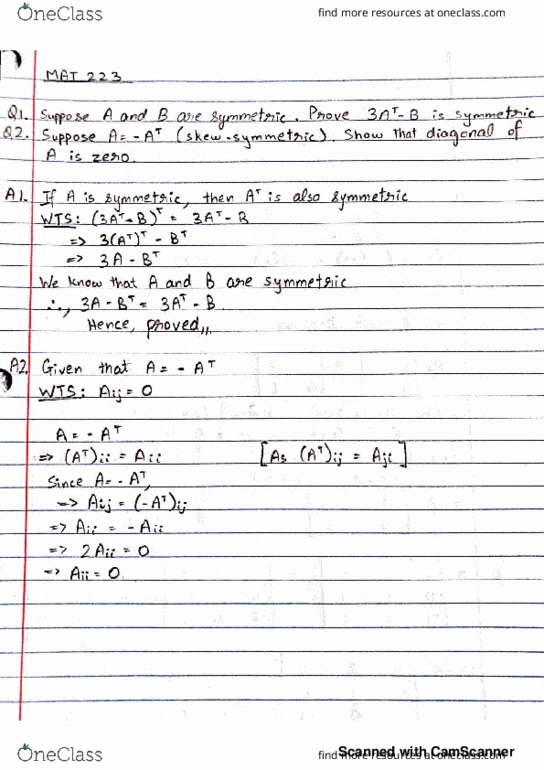 OneClass
find more resources at oneclass.com
MAT 223
Q1. Suppose A and B are symmetric. Prove 3Aᵀ - B is symmetric
Q2. Suppose A = -Aᵀ (skew-symmetric). Show that diagonal of
A is zero.
A1. If A is symmetric, then Aᵀ is also symmetric
WTS: (3Aᵀ - B)ᵀ = 3Aᵀ - B
=> 3(Aᵀ)ᵀ - Bᵀ
=> 3A - Bᵀ
We know that A and B are symmetric
∴, 3A - Bᵀ = 3Aᵀ - B
Hence, proved,,
A2. Given that A = - Aᵀ
WTS: Aij = 0
A = - Aᵀ
=> (Aᵀ)ii = Aii [As (Aᵀ)ij = Aji]
Since A = - Aᵀ,
=> Aij = (-Aᵀ)ij
=> Aii = - Aii
=> 2Aii = 0
=> Aii = 0.
OneClass
find more resources at oneclass.com
Scanned with CamScanner